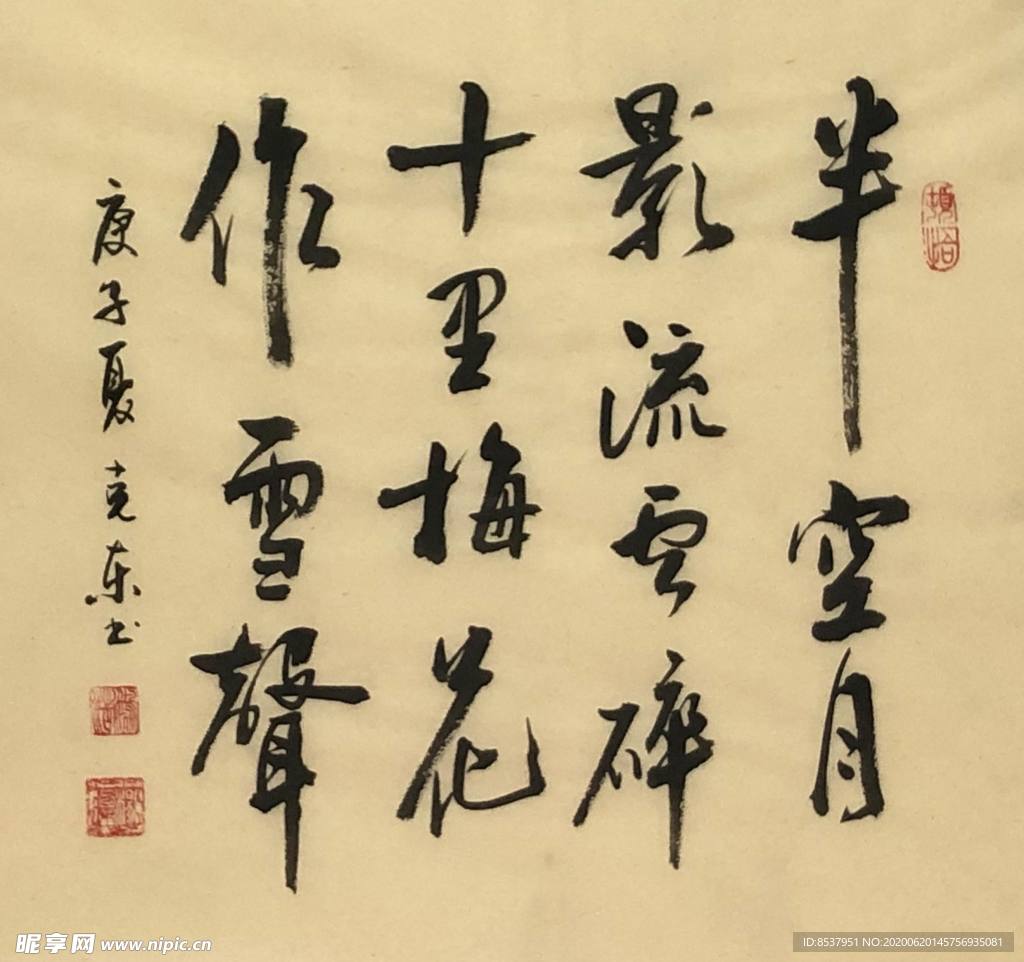 半空月
影流雲碎
十里梅花
作雪聲
庚子夏克东书
昵享网 www.nipic.cn
ID:8537951 NO:20200620145756935081